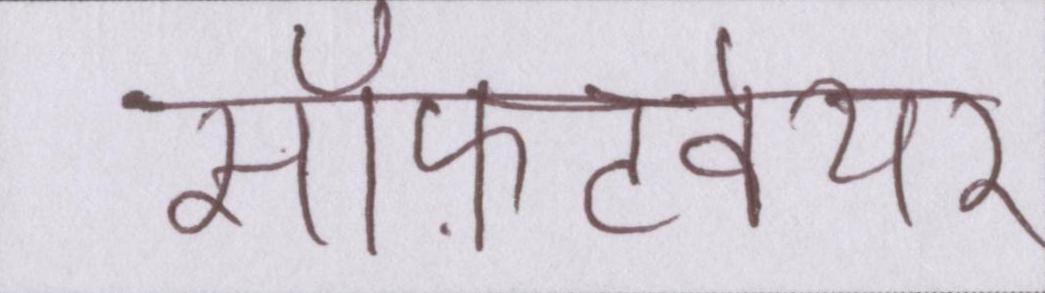 सॉफ़टवेयर